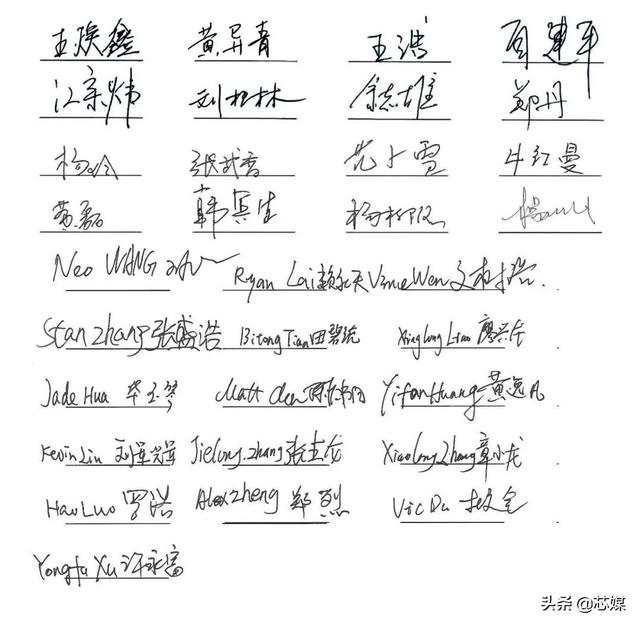 王 鑫 黄异青 王浩 建平
江宗炜 刘 林 余志雄 郑丹
杨 张武香 范小雪 牛红曼
黄磊 韩冥生 杨柳
Neo WANG Ryan Lai 赖 天 Vince Wen 文
Stan Zhang 张盛浩 Bitong Tian 田碧 Xinglong Liao 廖兴
Jade Hua 华玉琴 Matt Chen 陈 Yifan Huang 黄逸凡
Kevin Liu 刘 Jielong.zhang 张杰龙 Xiaolong Zhang 章小龙
Hao Luo 罗浩 Alex zheng 郑烈 Vic Du
Yongfu Xu 许永富
头条 @芯媒